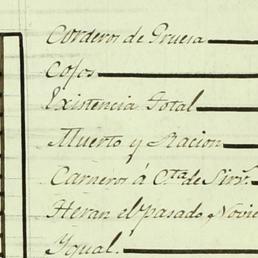 Corderos de Gruesa
Cojos
Existencia Total
Muerto y Racion
Carneros á Cta. de Sirv.
Heran el pasado Novie
Yqual.